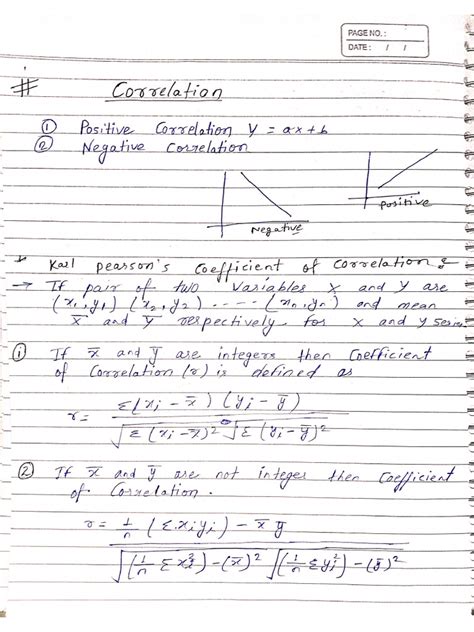 PAGE NO.:
DATE: / /
# Correlation
① Positive Correlation y = ax+b
② Negative Correlation
Positive
Negative
* Karl pearson's Coefficient of Correlation :
→ If pair of two Variables x and y are
(x₁,y₁) (x₂,y₂) ---- (xₙ,yₙ) and mean
x̅ and y̅ respectively for x and y series
① If x̅ and y̅ are integers then Coefficient
of Correlation (r) is defined as
r = Σ(xᵢ - x̅) (yᵢ - y̅) / √Σ(xᵢ - x̅)² √Σ(yᵢ - y̅)²
② If x̅ and y̅ are not integer then Coefficient
of Correlation.
r = 1/n (Σxᵢyᵢ) - x̅ y̅ / √(1/n Σxᵢ²) - (x̅)² √(1/n Σyᵢ²) - (y̅)²